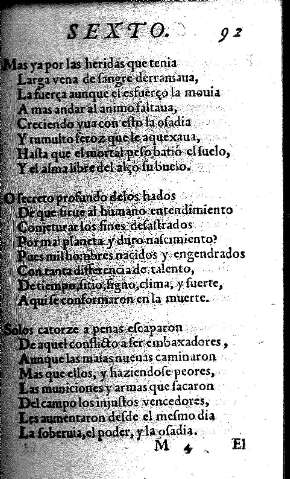 SEXTO. 92
Mas ya por las heridas que tenia
Larga vena de sangre derramaua,
La fuerça aunque el esfuerço la mouia
A mas andar al animo faltaua,
Creciendo yua con esto la osadia
Y tumulto feroz que le aquexaua,
Hasta que el mortal peso batiò el suelo,
Y el alma libre del alço su buelo.
O secreto profundo de los hados
De que sirue al humano entendimiento
Conjeturar los fines desastrados
Por mal planeta y duro nascimiento?
Pues mil hombres nacidos y engendrados
Con tanta differencia de talento,
De tiempo, sitio, signo, clima, y suerte,
Aqui se conformaron en la muerte.
Solos catorze a penas escaparon
De aquel conflicto a ser embaxadores,
Aunque las malas nueuas caminaron
Mas que ellos, y haziendose peores,
Las municiones y armas que sacaron
Del campo los injustos vencedores,
Les aumentaron desde el mesmo dia
La soberuia, el poder, y la osadia.
M 4 El